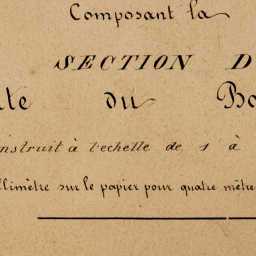 Composant la
SECTION D
te du Bo
nstruit à l'echelle de 1 à
llimètre sur le papier pour quatre mètre